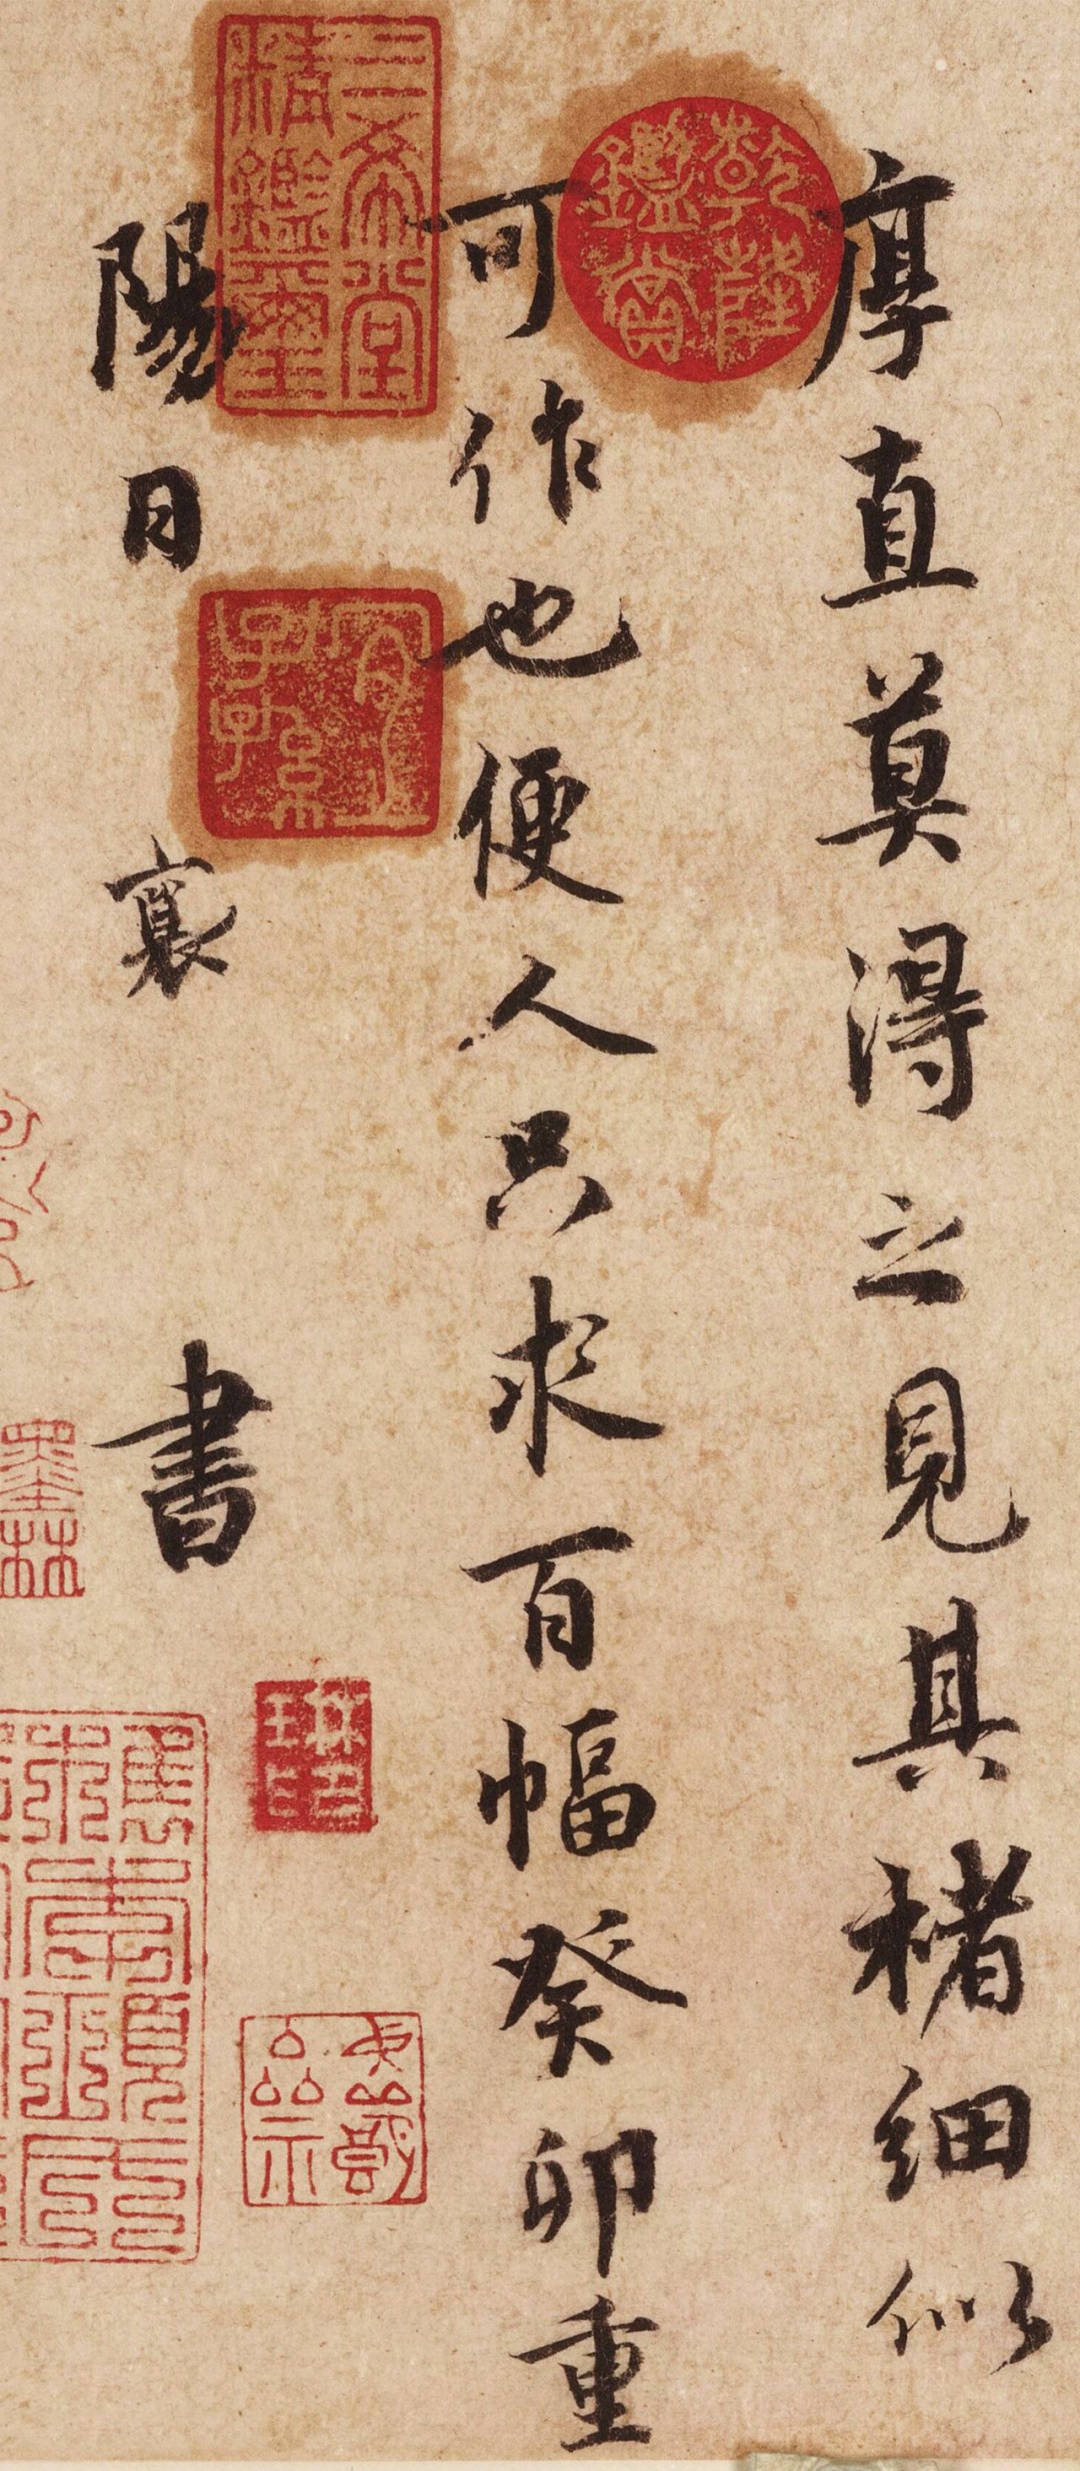 厚直莫得之見其楮細似
可作也便人只求百幅癸卯重
陽日襄書
乾隆鑒賞
三希堂精鑑璽
宜子孫
墨林